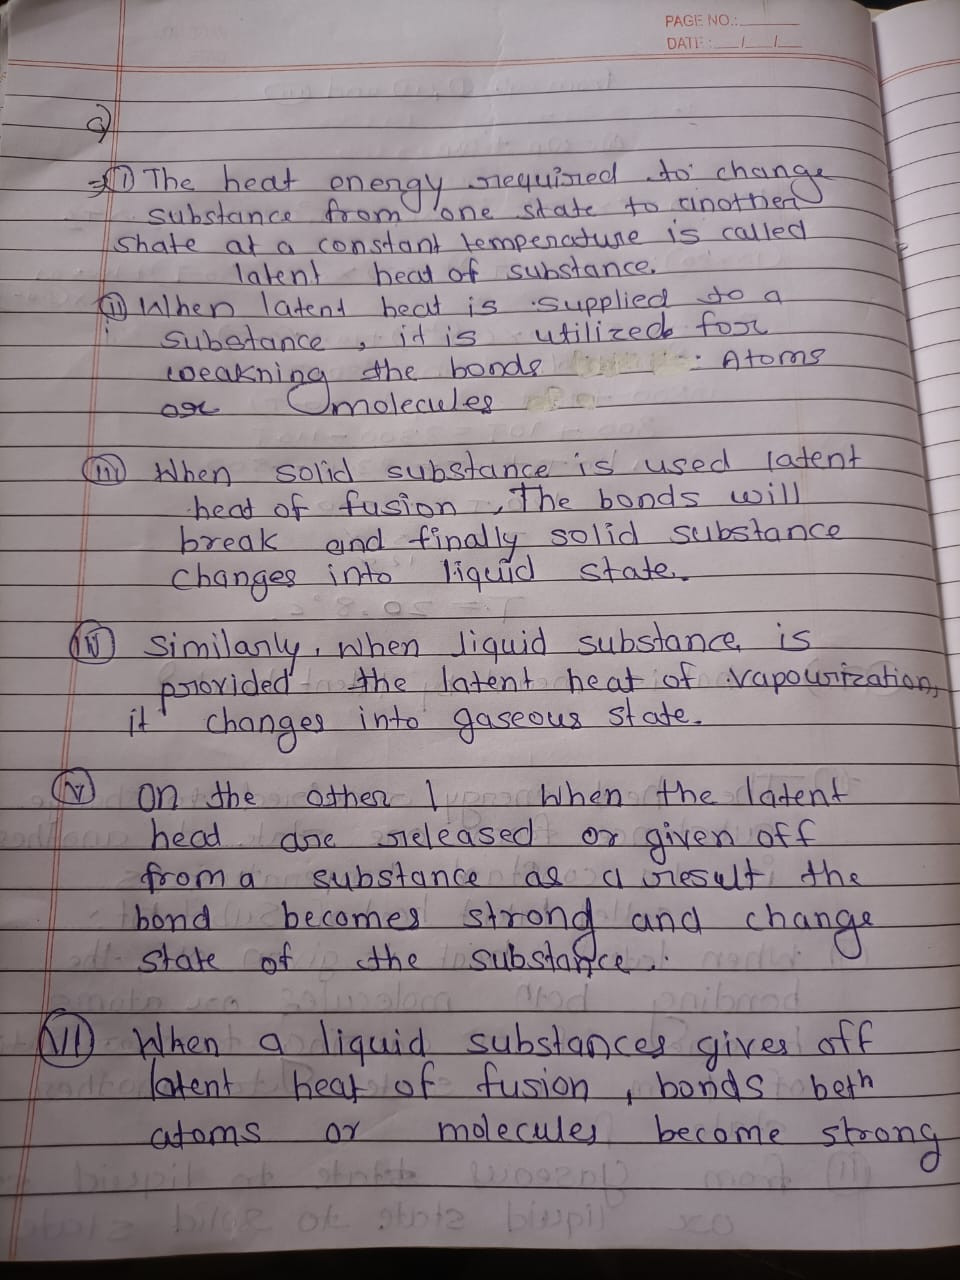 PAGE NO.:
DATE: / /
Q)
⇒ (i) The heat energy required to change
substance from one state to another
shate at a constant temperature is called
latent heat of substance.
(ii) When latent heat is supplied to a
substance, it is utilized for
weakning the bonds Atoms
or molecules
(iii) When solid substance is used latent
heat of fusion, The bonds will
break and finally solid substance
changes into liquid state.
(iv) Similarly, when liquid substance is
provided the latent heat of vapourization,
it changes into gaseous state.
(v) on the other 1 When the latent
head are released or given off
from a substance as a result the
bond becomes strong and change
state of the substance.
(VI) When a liquid substances gives off
latent heat of fusion, bonds beth
atoms or molecules become strong